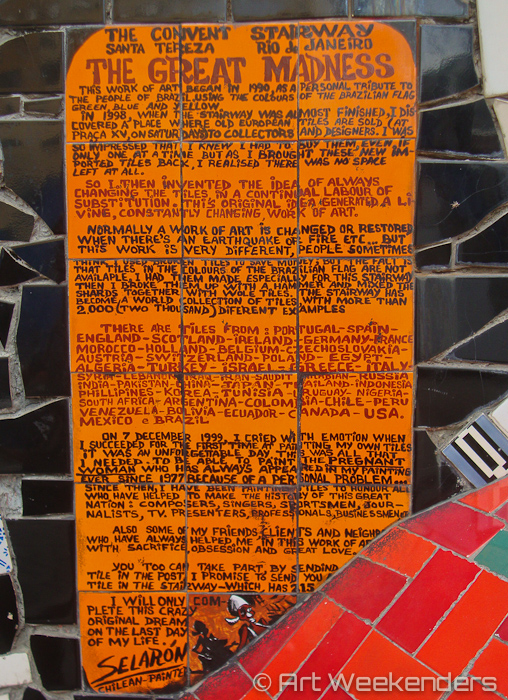 THE CONVENT STAIRWAY
SANTA TEREZA RIO de JANEIRO
THE GREAT MADNESS
THIS WORK OF ART BEGAN IN 1990, AS A PERSONAL TRIBUTE TO
THE PEOPLE OF BRAZIL USING THE COLOURS OF THE BRAZILIAN FLAG
GREEN, BLUE AND YELLOW.
IN 1998, WHEN THE STAIRWAY WAS ALMOST FINISHED, I DIS
COVERED A PLACE WHERE OLD EUROPEAN TILES ARE SOLD (AT
PRAÇA XV, ON SATURDAYS TO COLLECTORS AND DESIGNERS. I WAS
SO IMPRESSED THAT I KNEW I HAD TO BUY THEM, EVEN IF
ONLY ONE AT A TIME BUT AS I BROUGHT THESE NEW IM-
PORTED TILES BACK, I REALISED THERE WAS NO SPACE
LEFT AT ALL.
SO I THEN INVENTED THE IDEA OF ALWAYS
CHANGING THE TILES IN A CONTINUAL LABOUR OF
SUBSTITUTION. THIS ORIGINAL IDEA GENERATED A LI
VINE, CONSTANTLY CHANGING, WORK OF ART.
NORMALLY A WORK OF ART IS CHANGED OR RESTORED
WHEN THERE'S AN EARTHQUAKE OR FIRE ETC... BUT
THIS WORK IS VERY DIFFERENT, PEOPLE SOMETIMES
THINK I USED BROKEN TILES TO SAVE MONEY; BUT THE FACT IS
THAT TILES IN THE COLOURS OF THE BRAZILIAN FLAG ARE NOT
AVAILABLE, I HAD THEM MADE ESPECIALLY FOR THIS STAIRWAY
THEN I BROKE THEM UP WITH A HAMMER AND MIXED THE
SHARDS TOGETHER WITH WOLE TILES. THE STAIRWAY HAS
BECOME A WORLD COLLECTION OF TILES WITH MORE THAN
2,000 (TWO THOUSAND) DIFFERENT EXAMPLES
THERE ARE TILES FROM: PORTUGAL-SPAIN-
ENGLAND-SCOTLAND-IRELAND-GERMANY-FRANCE
MOROCCO-HOLLAND-BELGIUM-CZECHOSLOVAKIA
AUSTRIA-SWITZERLAND-POLAND-EGYPT-
ALGERIA-TURKEY-ISRAEL-GREECE-ITALY-
SYRIA-LEBANON-IRAN-SAUDI ARABIAN-RUSSIA
INDIA-PAKISTAN-CHINA-JAPAN-THAILAND-INDONESIA
PHILLIPINES-KOREA-TUNISIA-URUGUAY-NIGERIA-
SOUTH AFRICA-ARGENTINA-COLOMBIA-CHILE-PERU
VENEZUELA-BOLIVIA-ECUADOR-CANADA-USA.
MEXICO e BRAZIL
ON 7 DECEMBER 1999, I CRIED WITH EMOTION WHEN
I SUCCEEDED FOR THE FIRST TIME AT PAINTING MY OWN TILES
IT WAS AN UNFORGETABLE DAY, THIS WAS ALL THAT
I NEEDED: TO BE ABLE TO PAINT THE PREGNANT
WOMAN WHO HAS ALWAYS APPEARED IN MY PAINTING
EVER SINCE 1977 BECAUSE OF A PERSONAL PROBLEM...
SINCE THEN, I HAVE BEEN PAINTING TILES TO HONOUR ALL
WHO HAVE HELPED TO MAKE THE HISTORY OF THIS GREAT
NATION: COMPOSERS, SINGERS, SPORTSMEN, JOUR-
NALISTS, TV PRESENTERS, PROFESSIONALS, BUSINESSMEN
ALSO SOME OF MY FRIENDS, CLIENTS AND NEIGH
WHO HAVE ALWAYS HELPED ME IN THIS WORK OF AR
WITH SACRIFICE, OBSESSION AND GREAT LOVE.
YOU TOO CAN TAKE PART, BY SENDING
TILE IN THE POST, I PROMISE TO SEND YOU
TILE IN THE STAIRWAY-WHICH HAS 215
I WILL ONLY COM-
PLETE THIS CRAZY
ORIGINAL DREAM
ON THE LAST DAY
OF MY LIFE.
SELARON
CHILEAN-PAINTER
© Art Weekenders